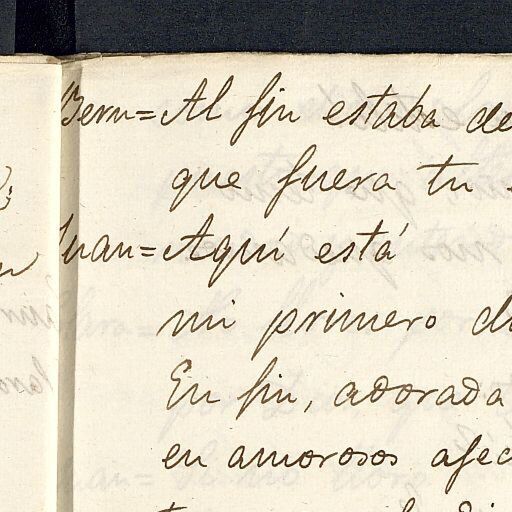 Bern= Al fin estaba de
que fuera tu
Juan= Aquí está
mi primero
En fin, adorada
en amorosos afec